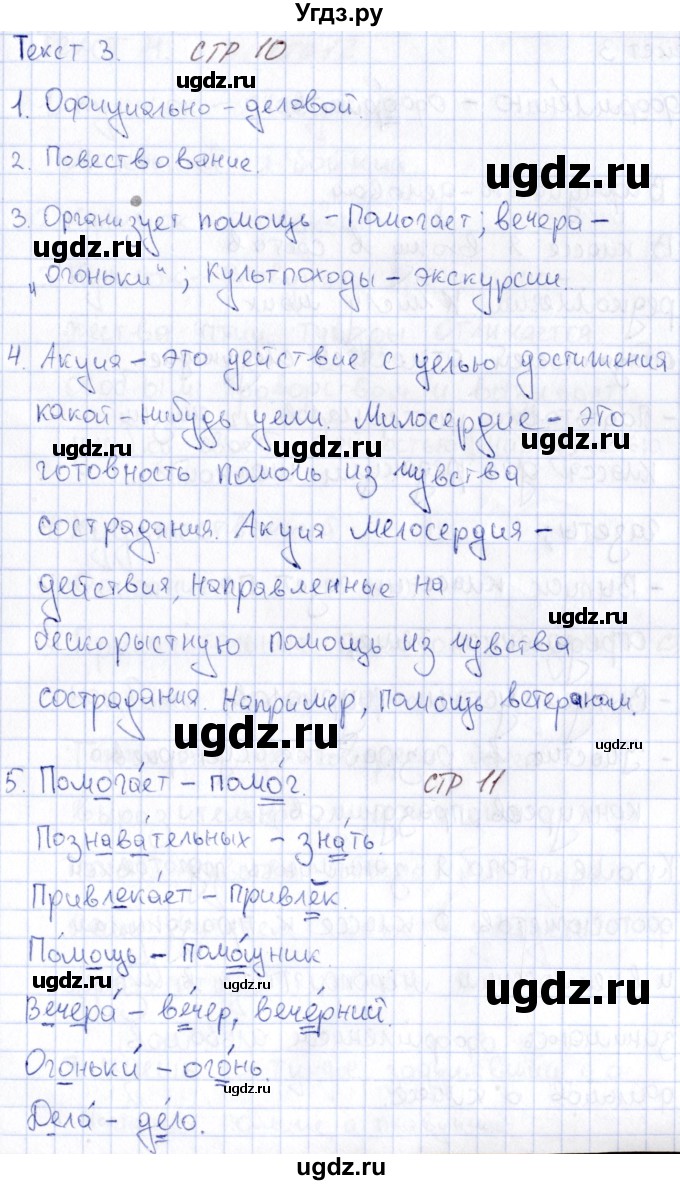 Угдз.ру
Текст 3. стр 10
ugdz.ru
1. Официально-деловой.
2. Повествование.
ugdz.ru
3. Организует помощь - Помогает; вечера -
ugdz.ru
"Огоньки"; Культпоходы - экскурсии.
ugdz.ru
4. Акция - это действие с целью достижения
какой-нибудь цели. Милосердие - это
ugdz.ru ugdz.ru
готовность помочь из чувства
ugdz.ru
сострадания. Акция Мелосердия -
действия, направленные на
ugdz.ru
бескорыстную помощь из чувства
сострадания. Например, помощь ветеранам.
ugdz.ru ugdz.ru
5. Помога́ет - помо́г. стр 11
Познава́тельных - зна́ть.
ugdz.ru
Привлека́ет - Привлёк.
По́мощь - помо́щник.
ugdz.ru ugdz.ru ugdz.ru
Вечера́ - ве́чер, вече́рний.
Огоньки́ - ого́нь.
ugdz.ru ugdz.ru
Дела́ - де́ло.
ugdz.ru